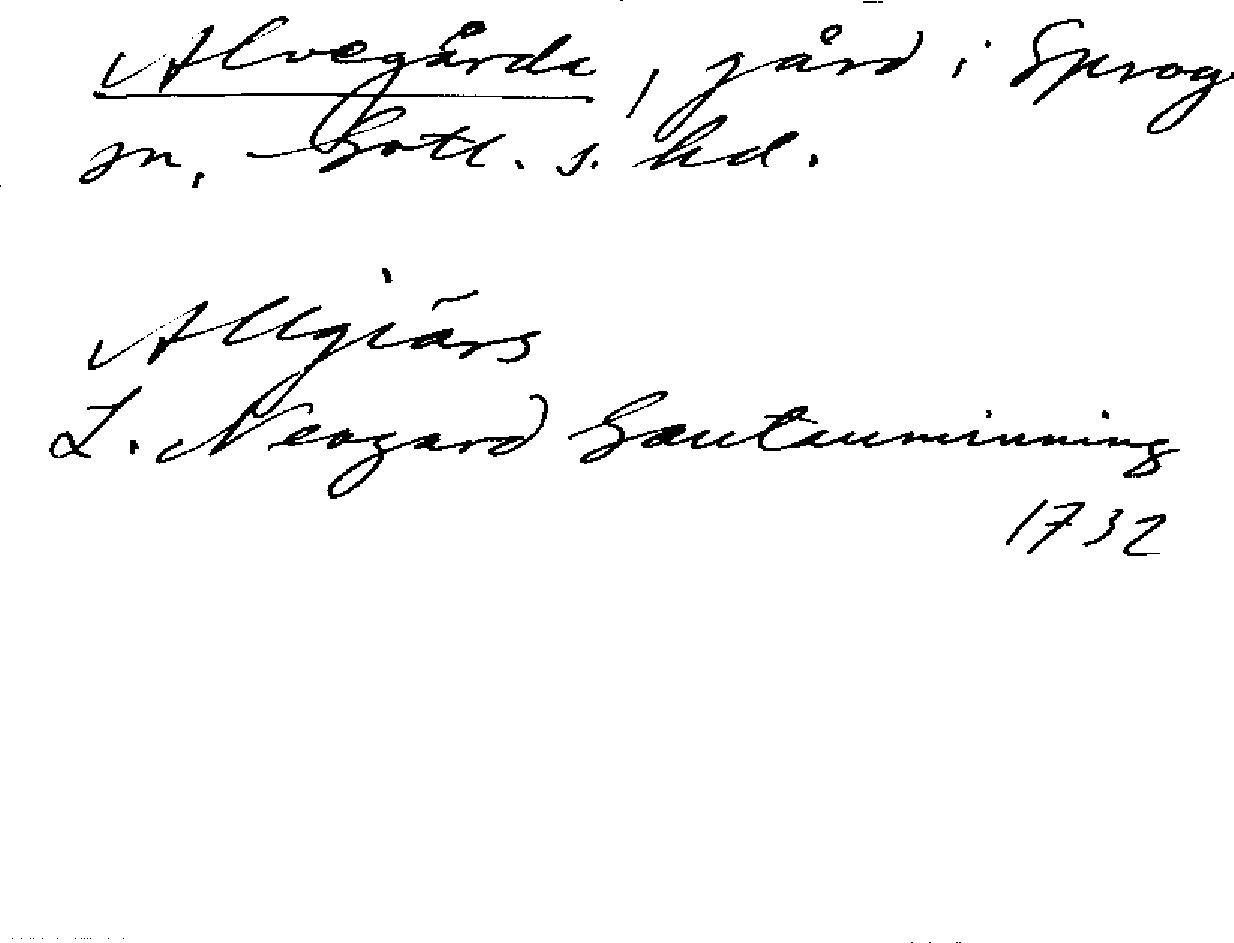 Alvegårda, gård i Sprog
sn, Gotl. s. hd.
Allgiãrs
L. Neogard Gautauminning
1732